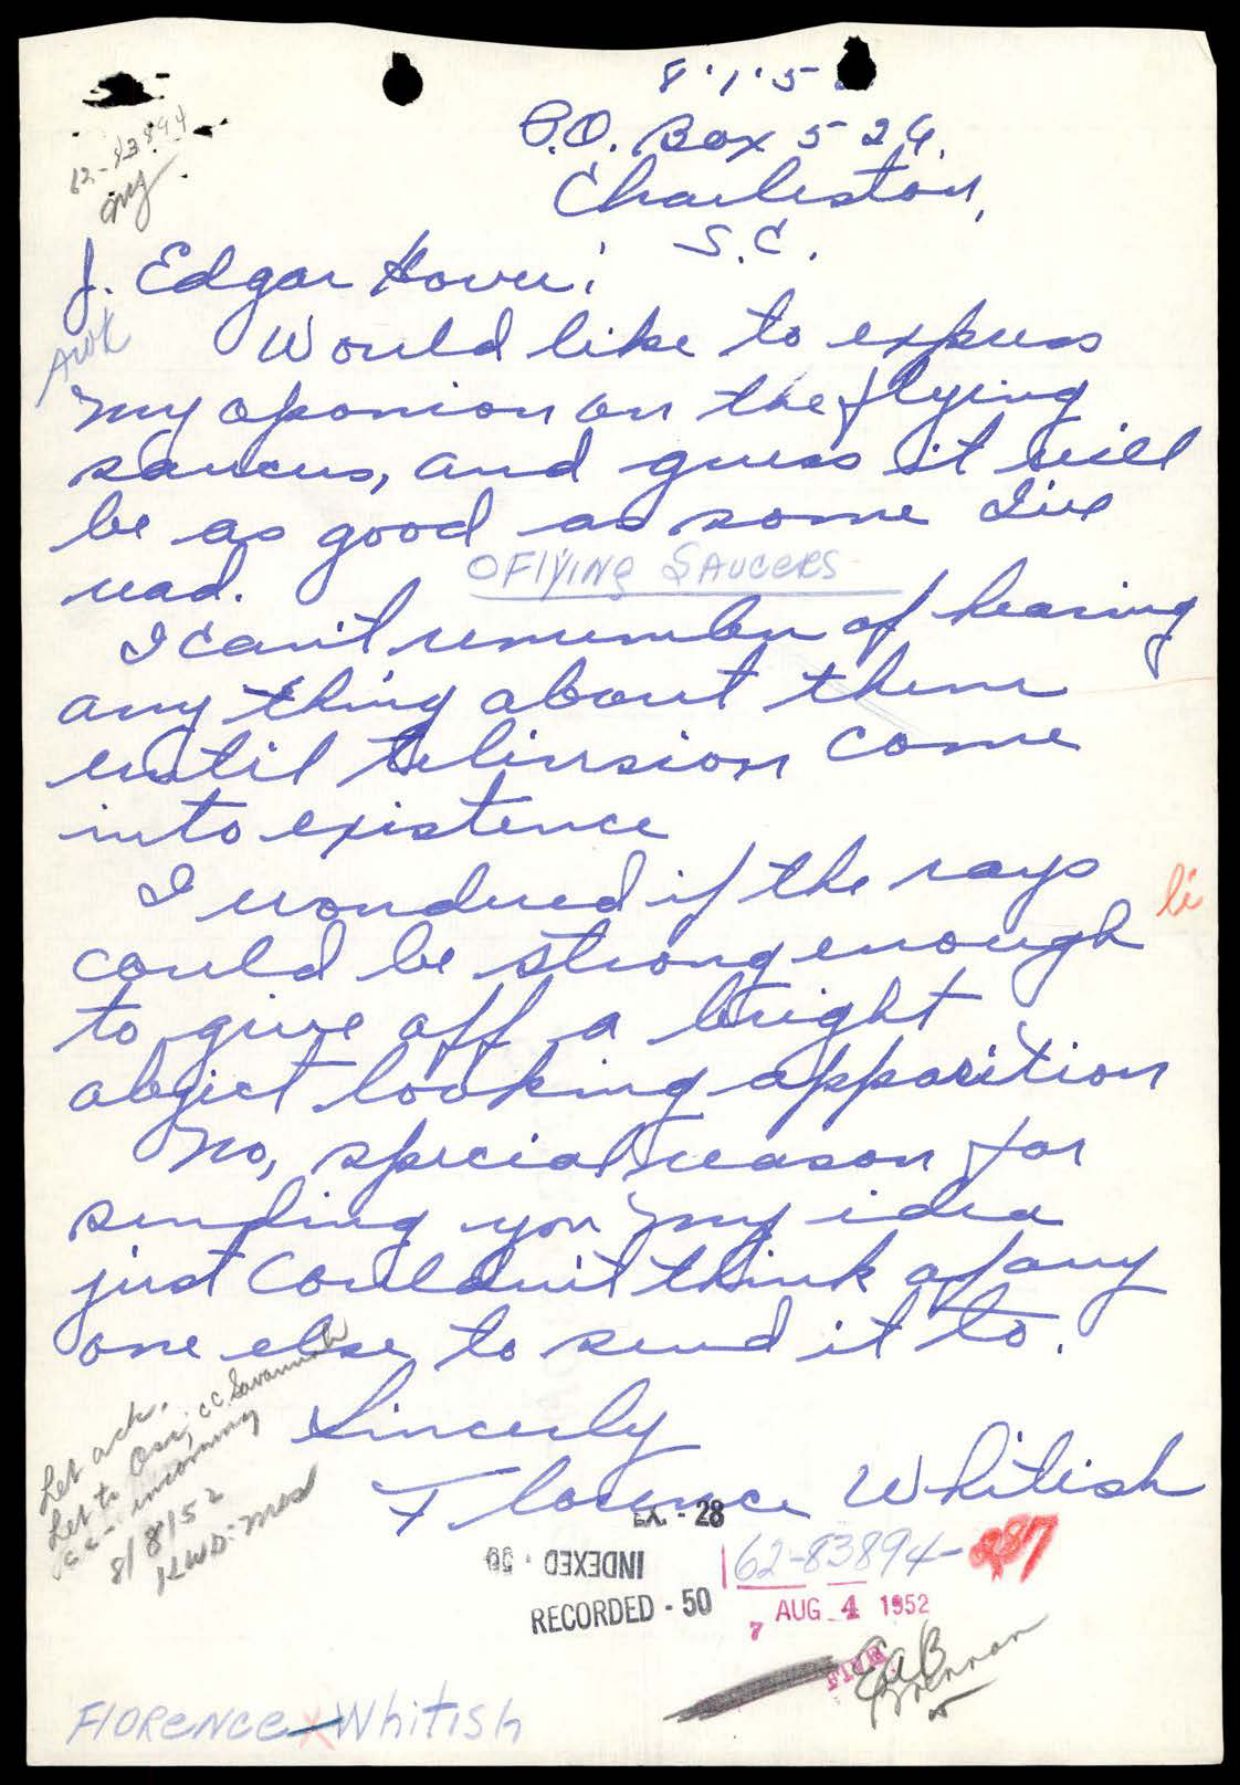 8.1.5
P.O. Box 526.
Charleston,
S.C.
62-83894
J. Edgar Hover:
Would like to express
my oponion on the flying
saucers, and guess it will
be as good as some I've
read.
OFlYING SAUCERS
I can't remember of hearing
any thing about them
until television come
into existence
I wondered if the rays
could be strong enough
to give off a bright
object looking apparition
No, special reason for
sending you my idea
just couldn't think of any
one else to send it to.
Sincerly
Florence Whitish
Let ack.
Let to OSI, cc Savannah
cc - incoming
8/8/52
EX. - 28
INDEXED - 50
62-83894-287
RECORDED - 50
7 AUG 4 1952
EAB
Brennan
FlORENCE Whitish